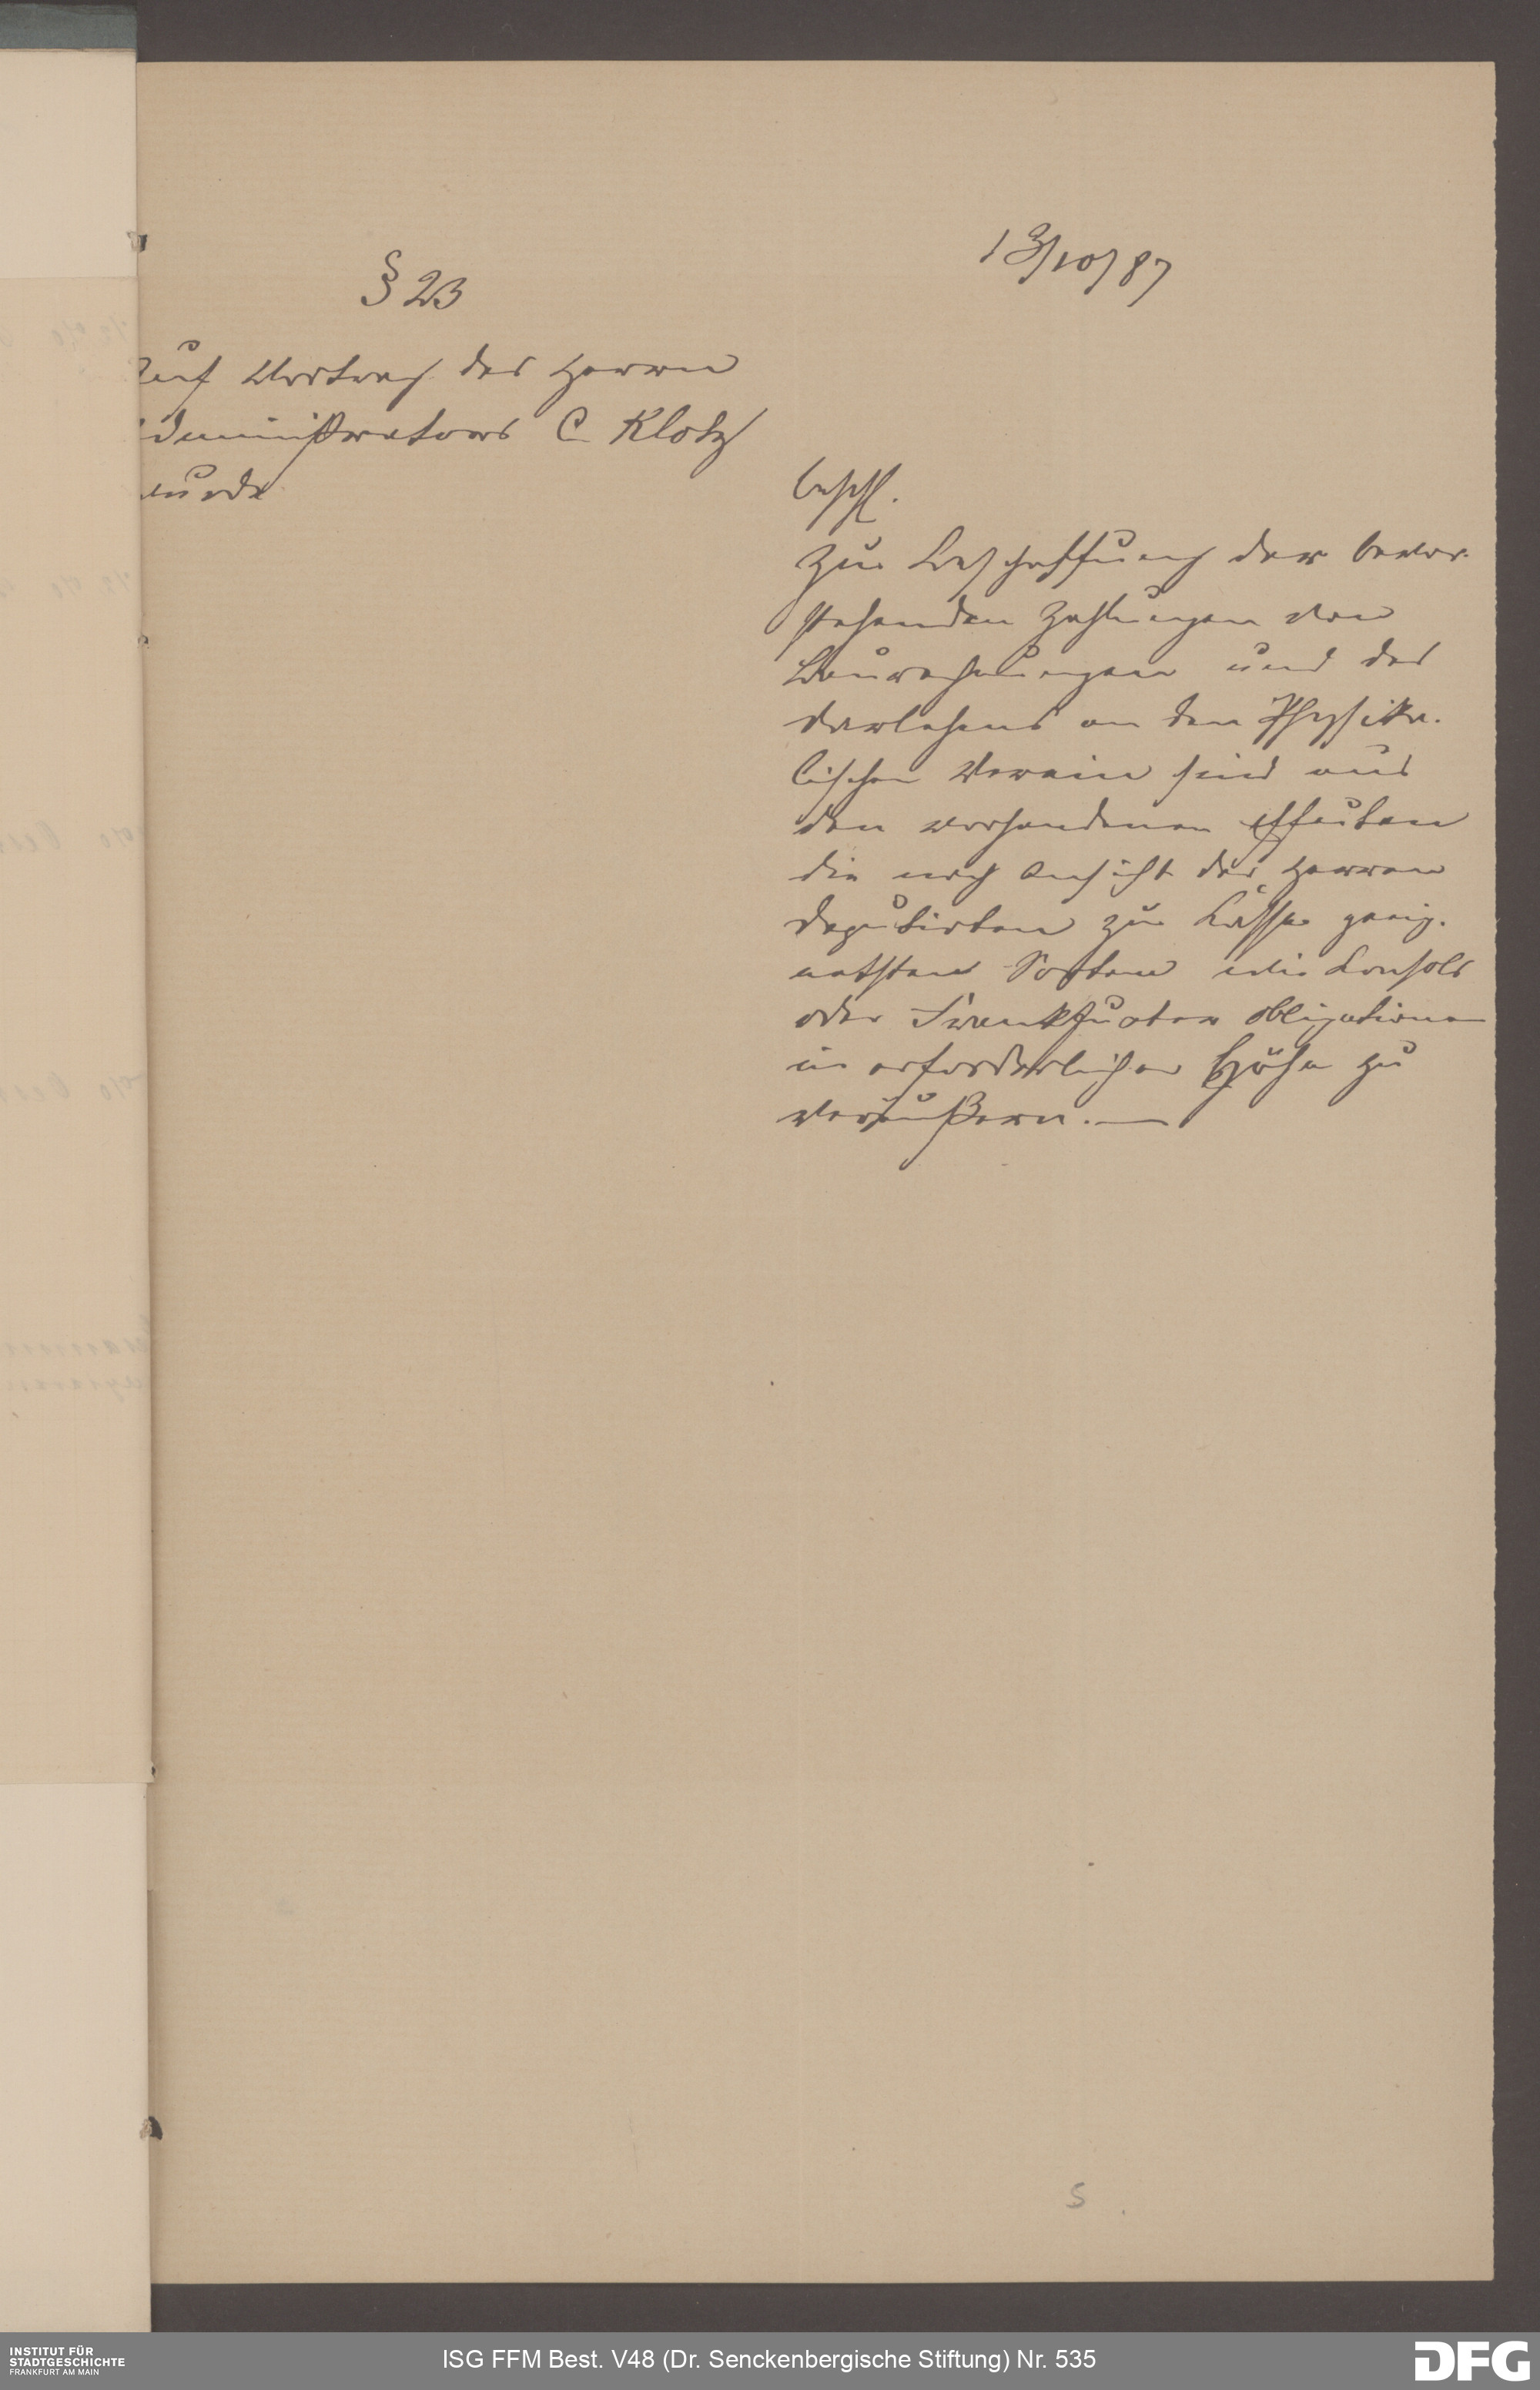 13/10/87
§ 23
Auf Vortrag des Herrn
Administrators C. Klotz
wurde
beschl.
Zur Beschaffung der bevor-
stehenden Zahlungen von
Baurechnungen und des
Darlehens an den Physika-
lischen Verein sind aus
den vorhandenen Effecten
die nach Ansicht der Herren
Deputirten zur Casse geeig-
netsten Sorten wie Consols
oder Frankfurter Obligationen
in erforderlicher Höhe zu
veräußern. —
S
INSTITUT FÜR
STADTGESCHICHTE
FRANKFURT AM MAIN
ISG FFM Best. V48 (Dr. Senckenbergische Stiftung) Nr. 535
DFG